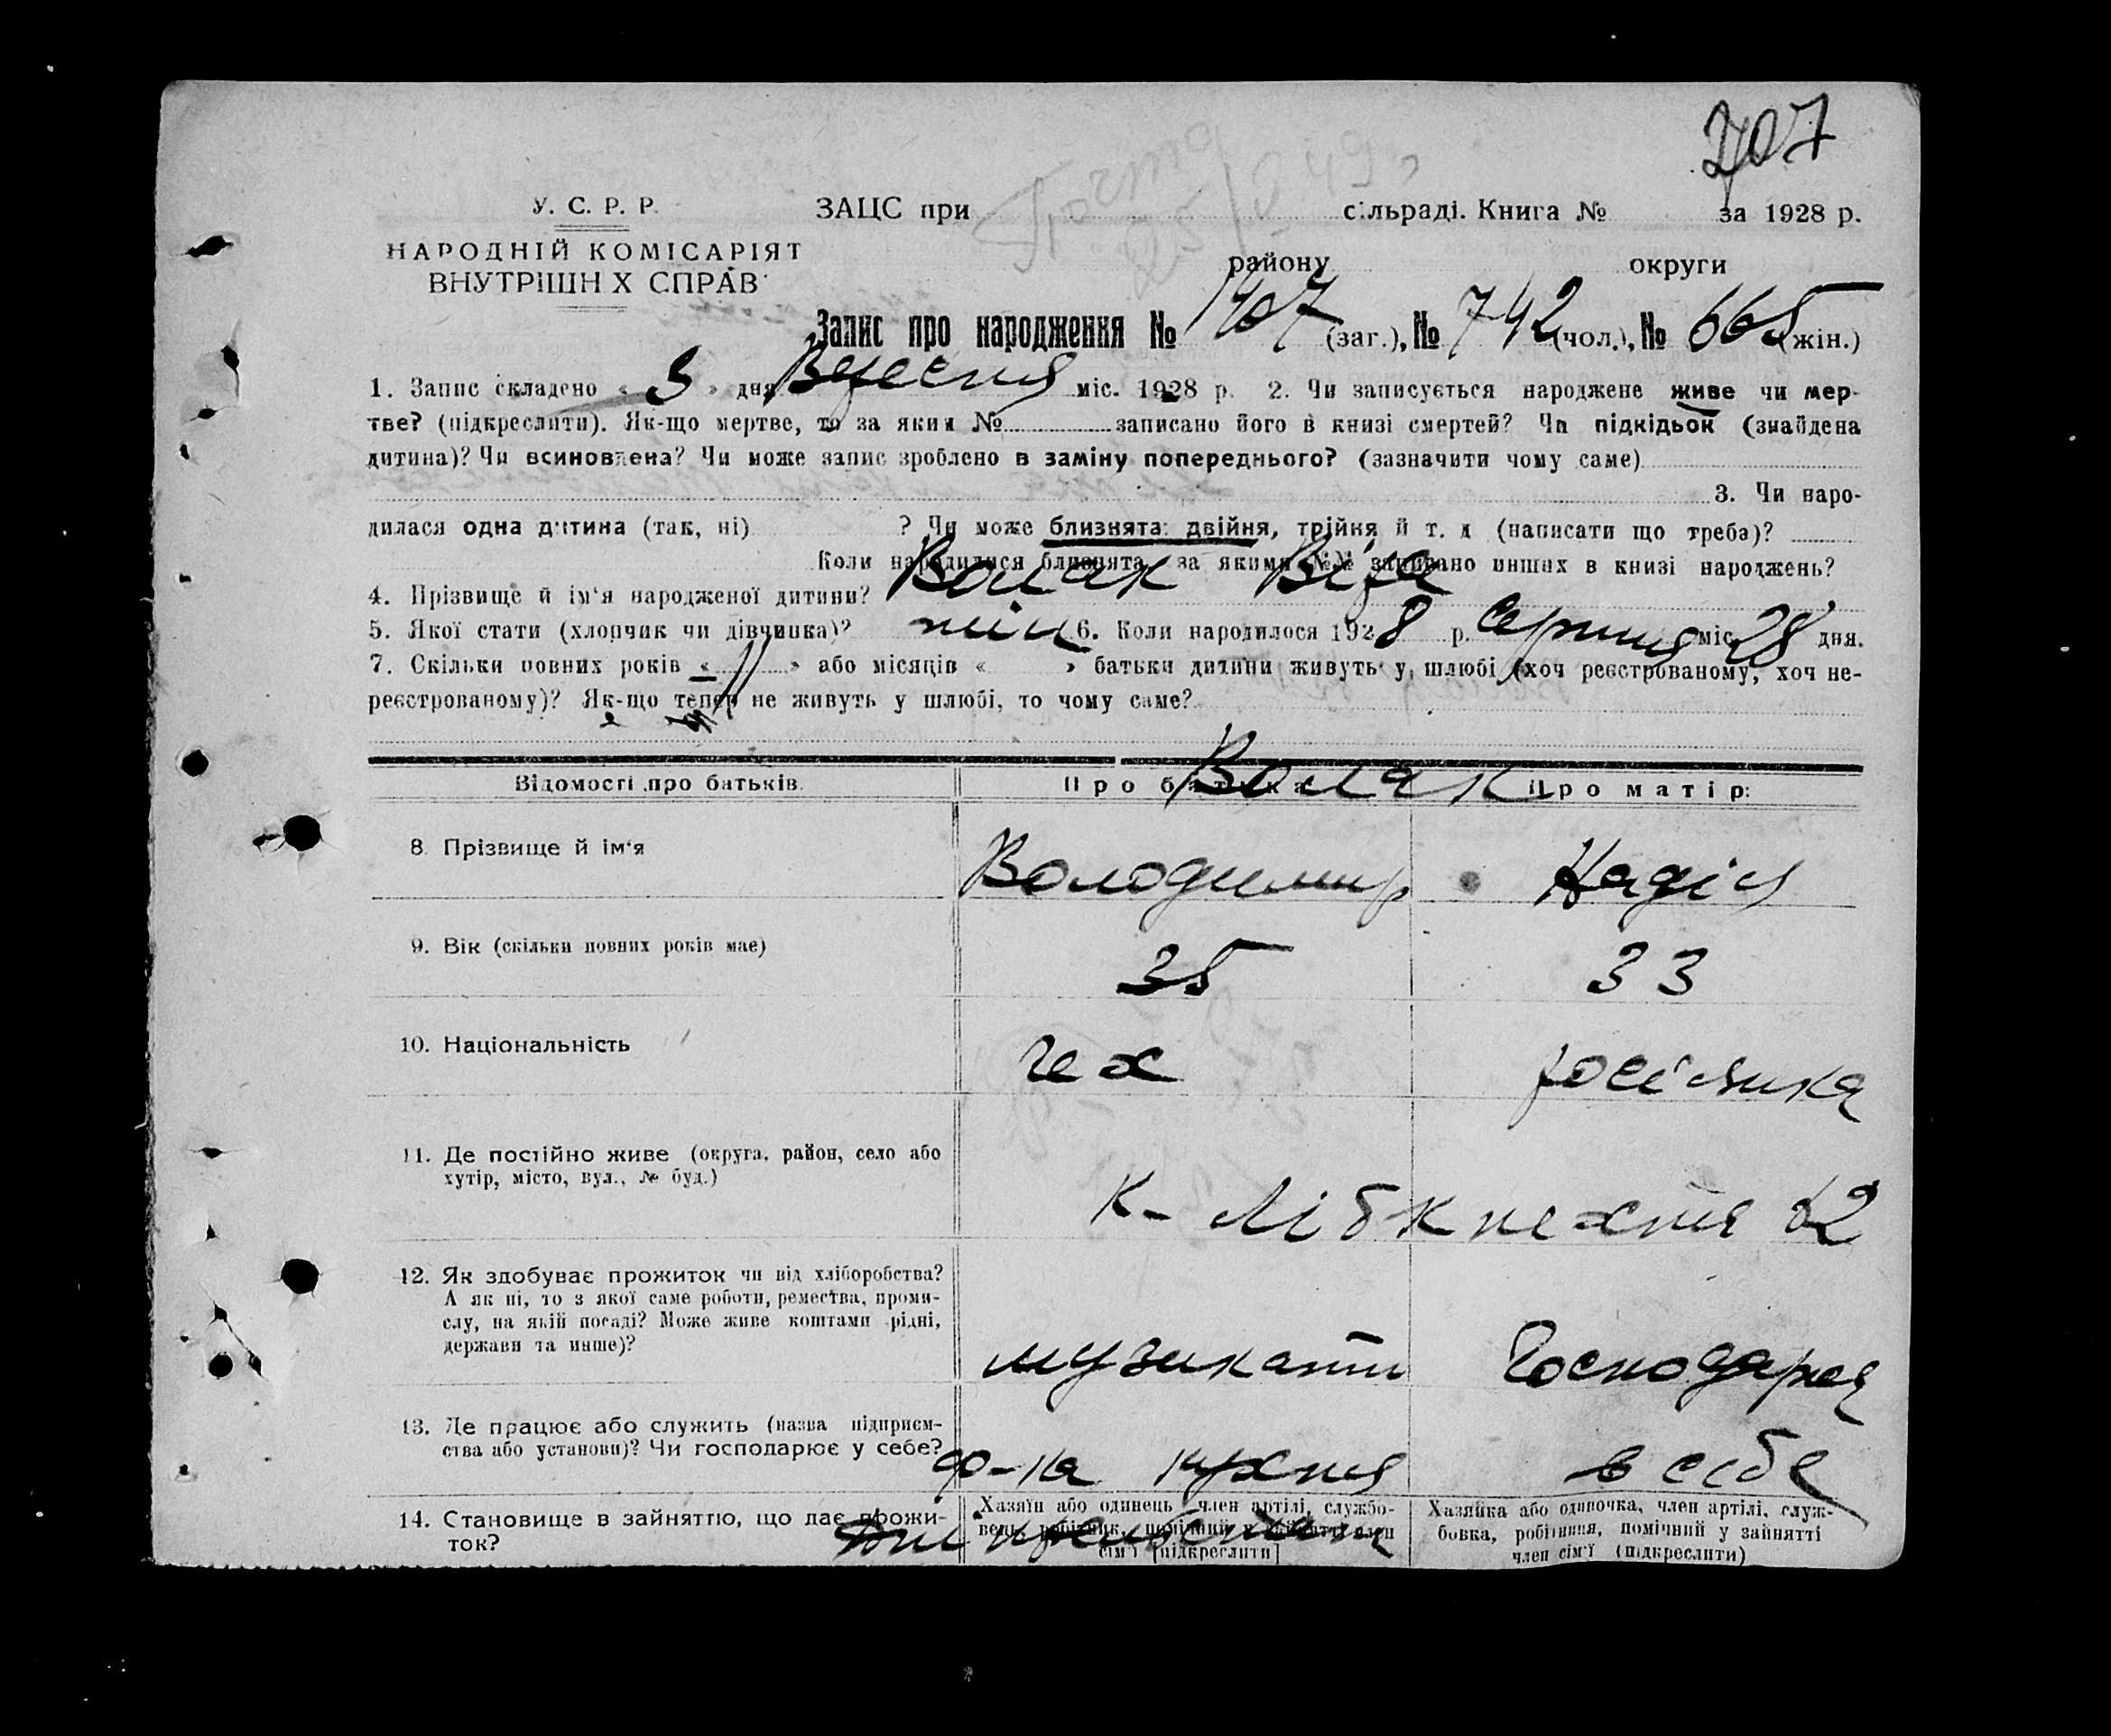 707
У. С. Р. Р.
ЗАЦС при сільраді. Книга № за 1928 р.
НАРОДНІЙ КОМІСАРІЯТ
району округи
ВНУТРІШН Х СПРАВ
Запис про народження № 1407 (заг.), № 742 (чол.), № 665 (жін.)
1. Запис складено « 3 » дня Вересня міс. 1928 р. 2. Чи записується народжене живе чи мер-
тве? (підкреслити). Як-що мертве, то за яким № записано його в книзі смертей? Чи підкідьок (знайдена
дитина)? Чи всиновлена? Чи може запис зроблено в заміну попереднього? (зазначити чому саме)
3. Чи наро-
дилася одна дитина (так, ні) ? Чи може близнята: двійня, трійня й т. д (написати що треба)?
Коли народилися близнята за якими №№ записано инших в книзі народжень?
4. Прізвище й ім'я народженої дитини? Волак Віра
5. Якої стати (хлопчик чи дівчинка)? жін 6. Коли народилося 1928 р. Серпня міс 28 дня.
7. Скільки повних років « 11 » або місяців « » батьки дитини живуть у шлюбі (хоч реєстрованому, хоч не-
реєстрованому)? Як-що тепер не живуть у шлюбі, то чому саме?
Волак
Відомості про батьків Про батька Про матір:
8. Прізвище й ім'я Володимир Надія
9. Вік (скільки повних років має) 35 33
10. Національність чех росіянка
11. Де постійно живе (округа, район, село або
хутір, місто, вул., № буд.)
К-Лібкнехта 62
12. Як здобуває прожиток чи від хліборобства?
А як ні, то з якої саме роботи, ремества, проми-
слу, на якій посаді? Може живе коштами рідні,
держави та инше)?
музикант Господарка
13. Де працює або служить (назва підприєм-
ства або установи)? Чи господарює у себе?
ф-ка в себе
14. Становище в зайняттю, що дає прожи-
ток?
Хазяїн або одинець член артілі, службо-
вець, робітник, помічний у зайнятті член
сім'ї [підкреслити]
Хазяйка або одиночка, член артілі, служ-
бовка, робітниця, помічний у зайнятті
член сім'ї (підкреслити)